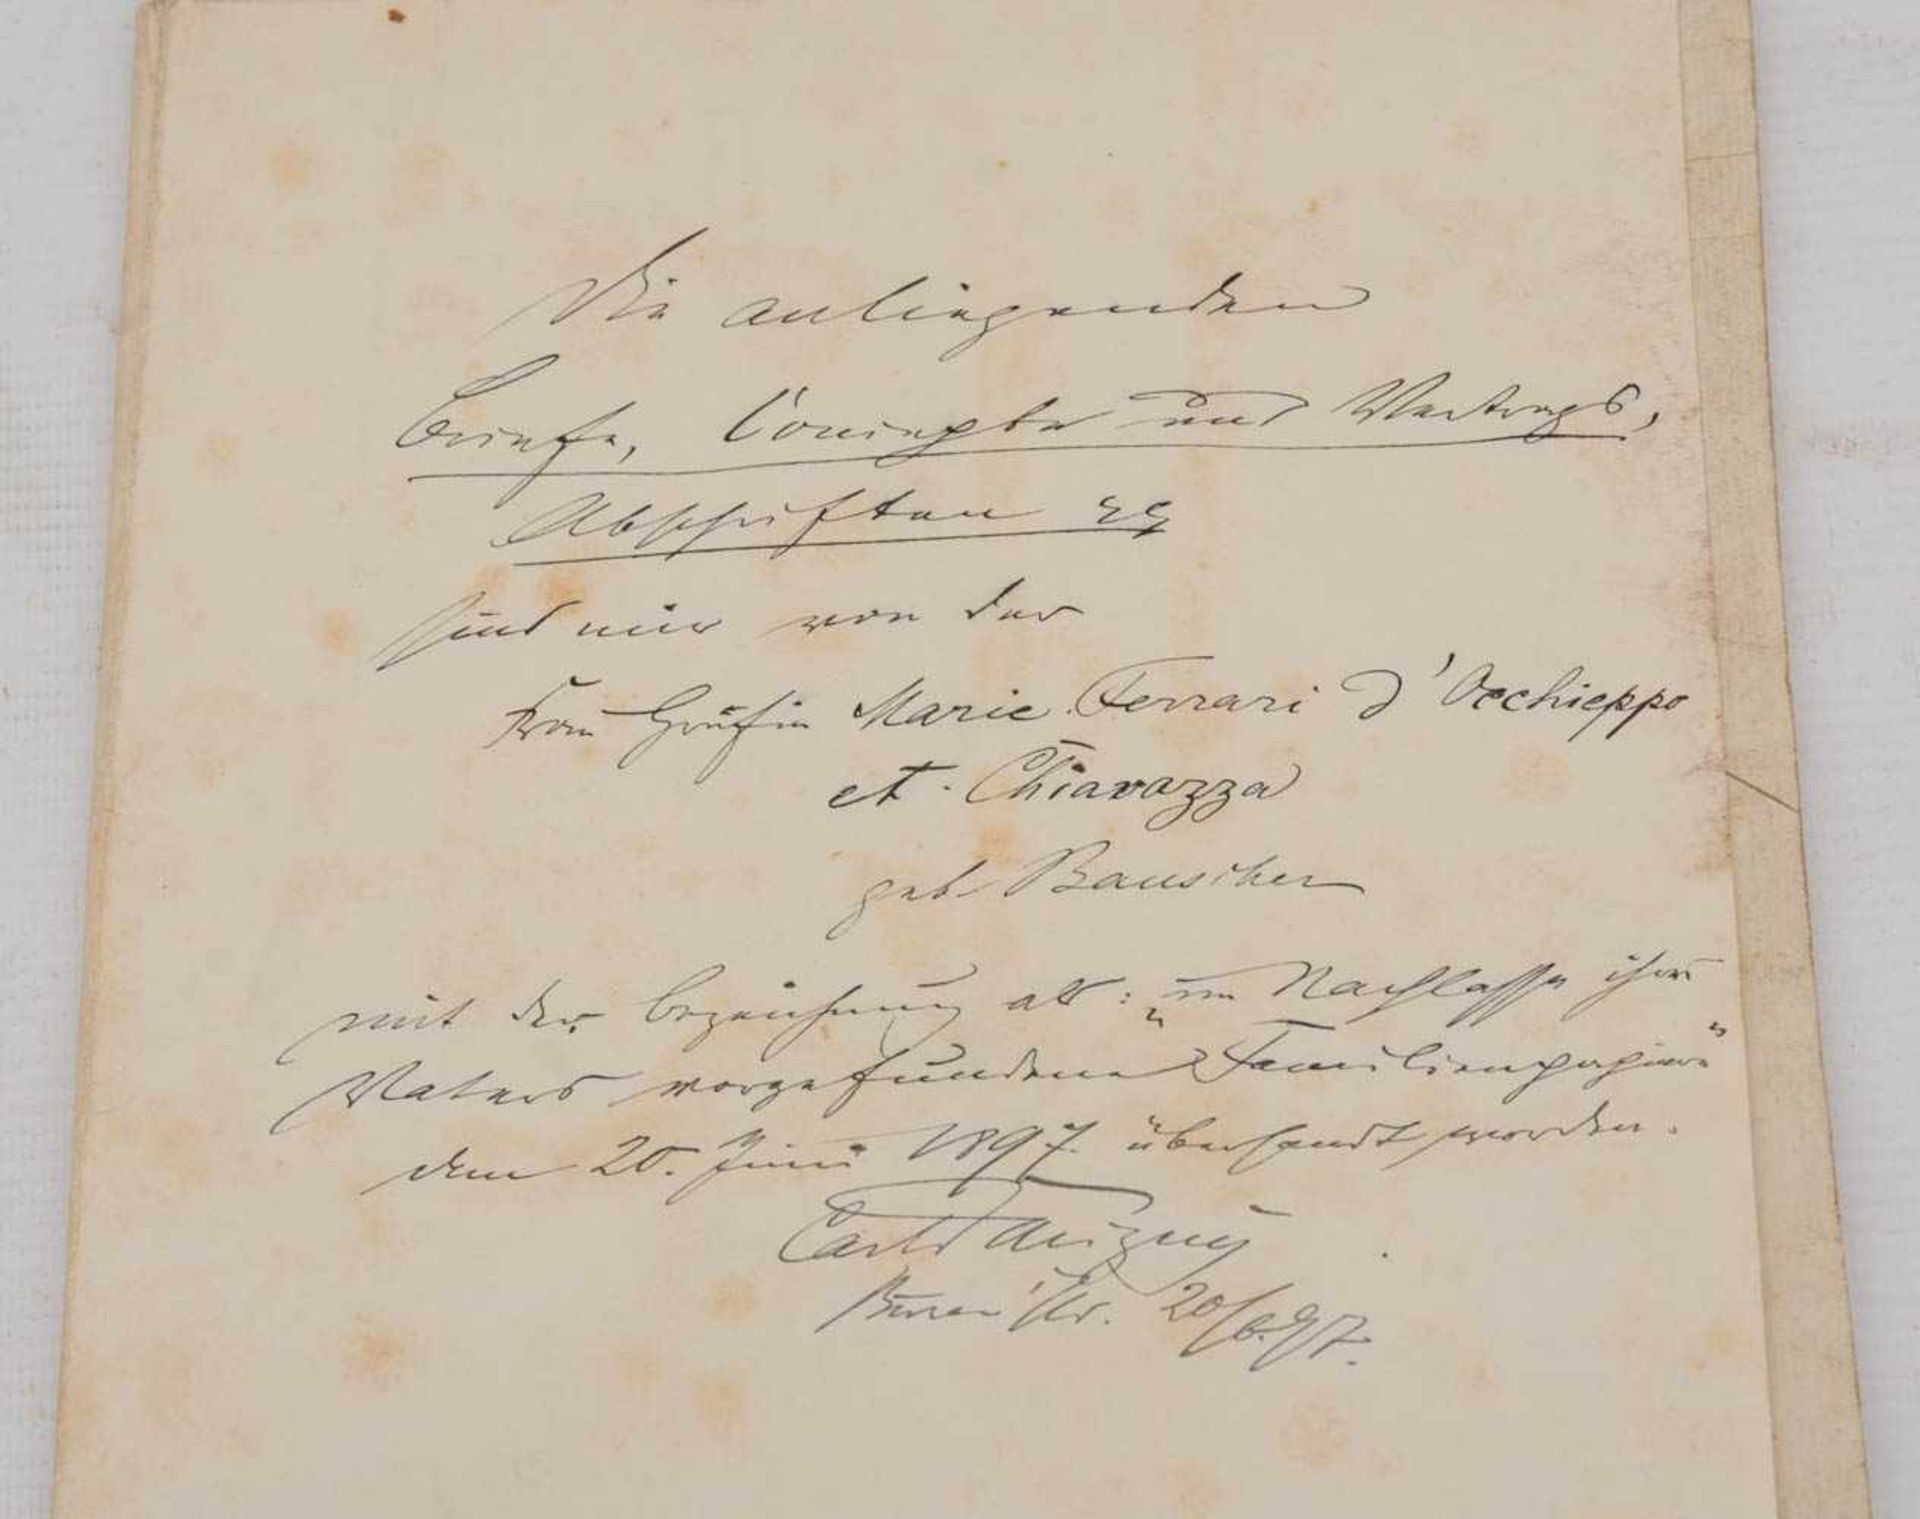 Die anliegenden
Briefe, Concepte und Vertrags,
Abschriften
sind mir von der
Frau Gräfin Marie Ferrari d'Occhieppo
et Chiavazza
geb. Bauscher
mit der Bezeichnung als: „im Nachlasse ihres
Vaters vorgefundene Familienpapiere“
den 20. Juni 1897. übersandt worden.
Carl
20/6.97.